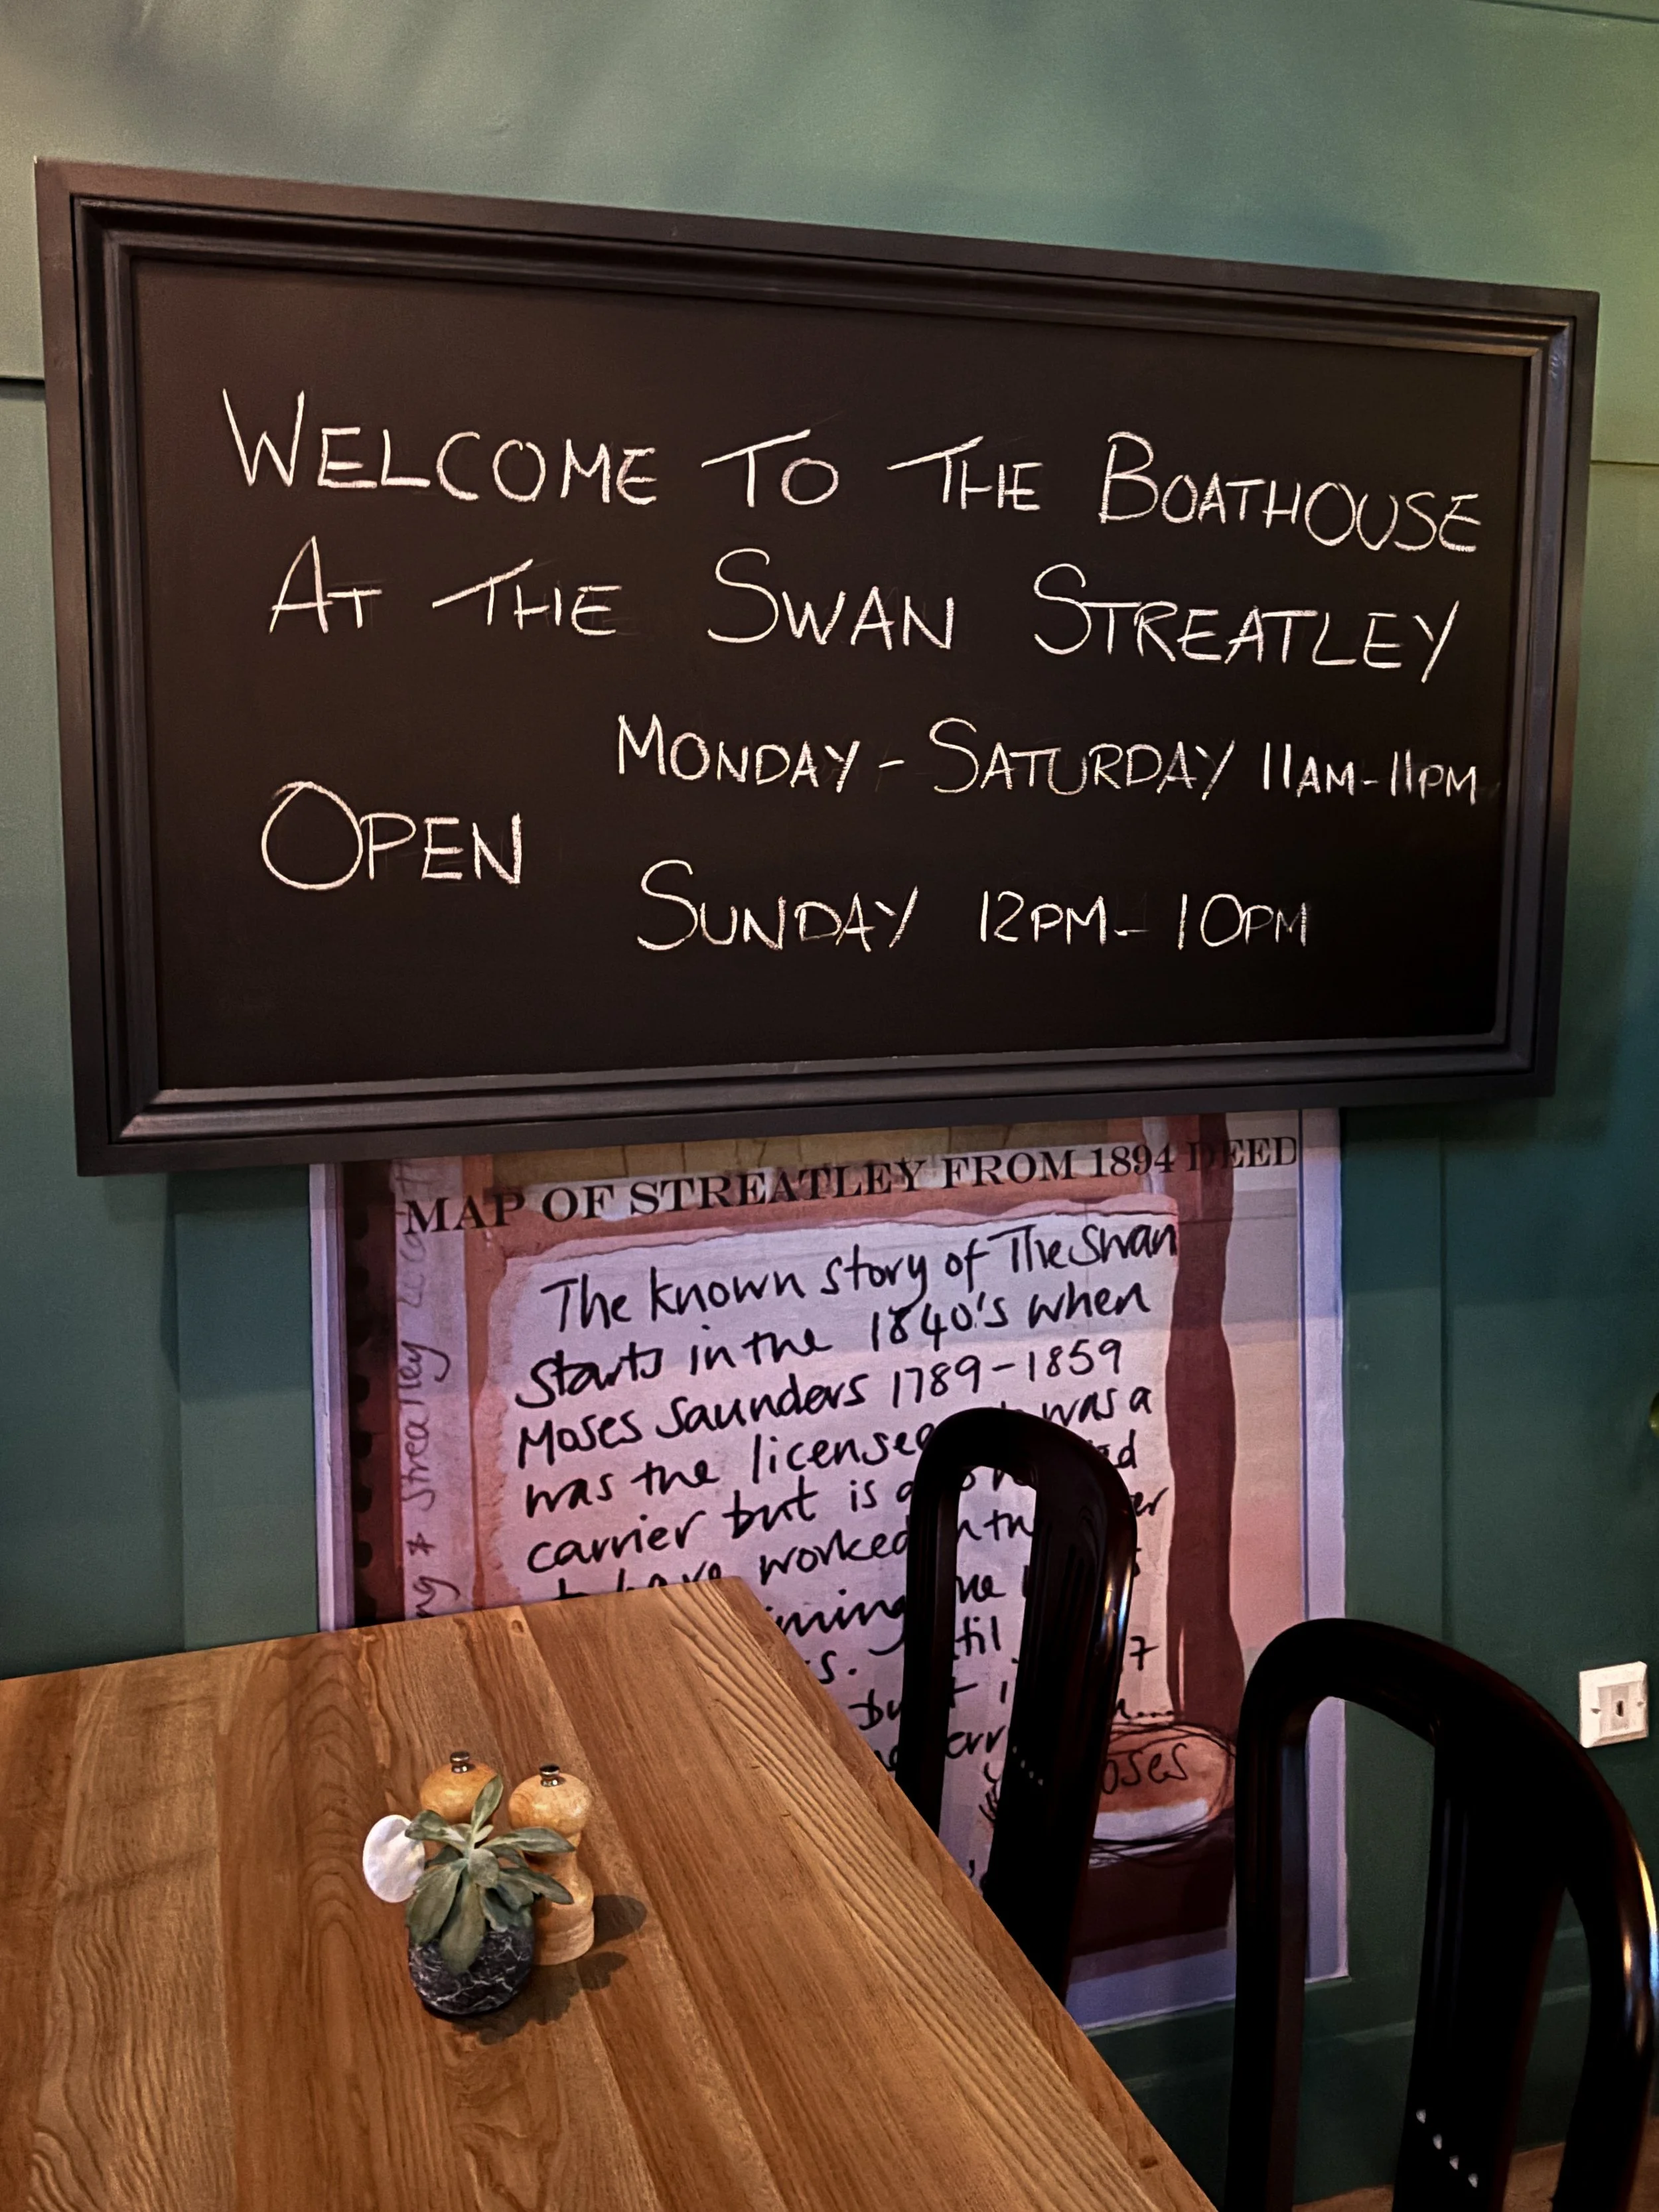 WELCOME TO THE BOATHOUSE
AT THE SWAN STREATLEY
OPEN
MONDAY - SATURDAY 11AM-11PM
SUNDAY 12PM- 10PM
MAP OF STREATLEY FROM 1894 DEED
The known story of The Swan
starts in the 1840's when
Moses Saunders 1789-1859
was the licensee was a
carrier but is
to have worked
& Streatley